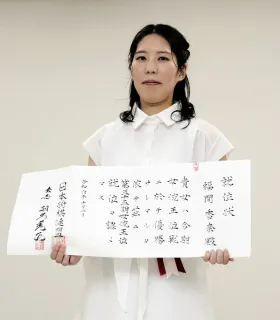 就位状
福間香奈殿
貴女ハ今期
女流王位戦
ニ於テ優勝
サレマシタ
依テ茲ニ
女流王位
就位ヲ認メ
マス
令和六年
日本将棋連盟
会長 羽生善治